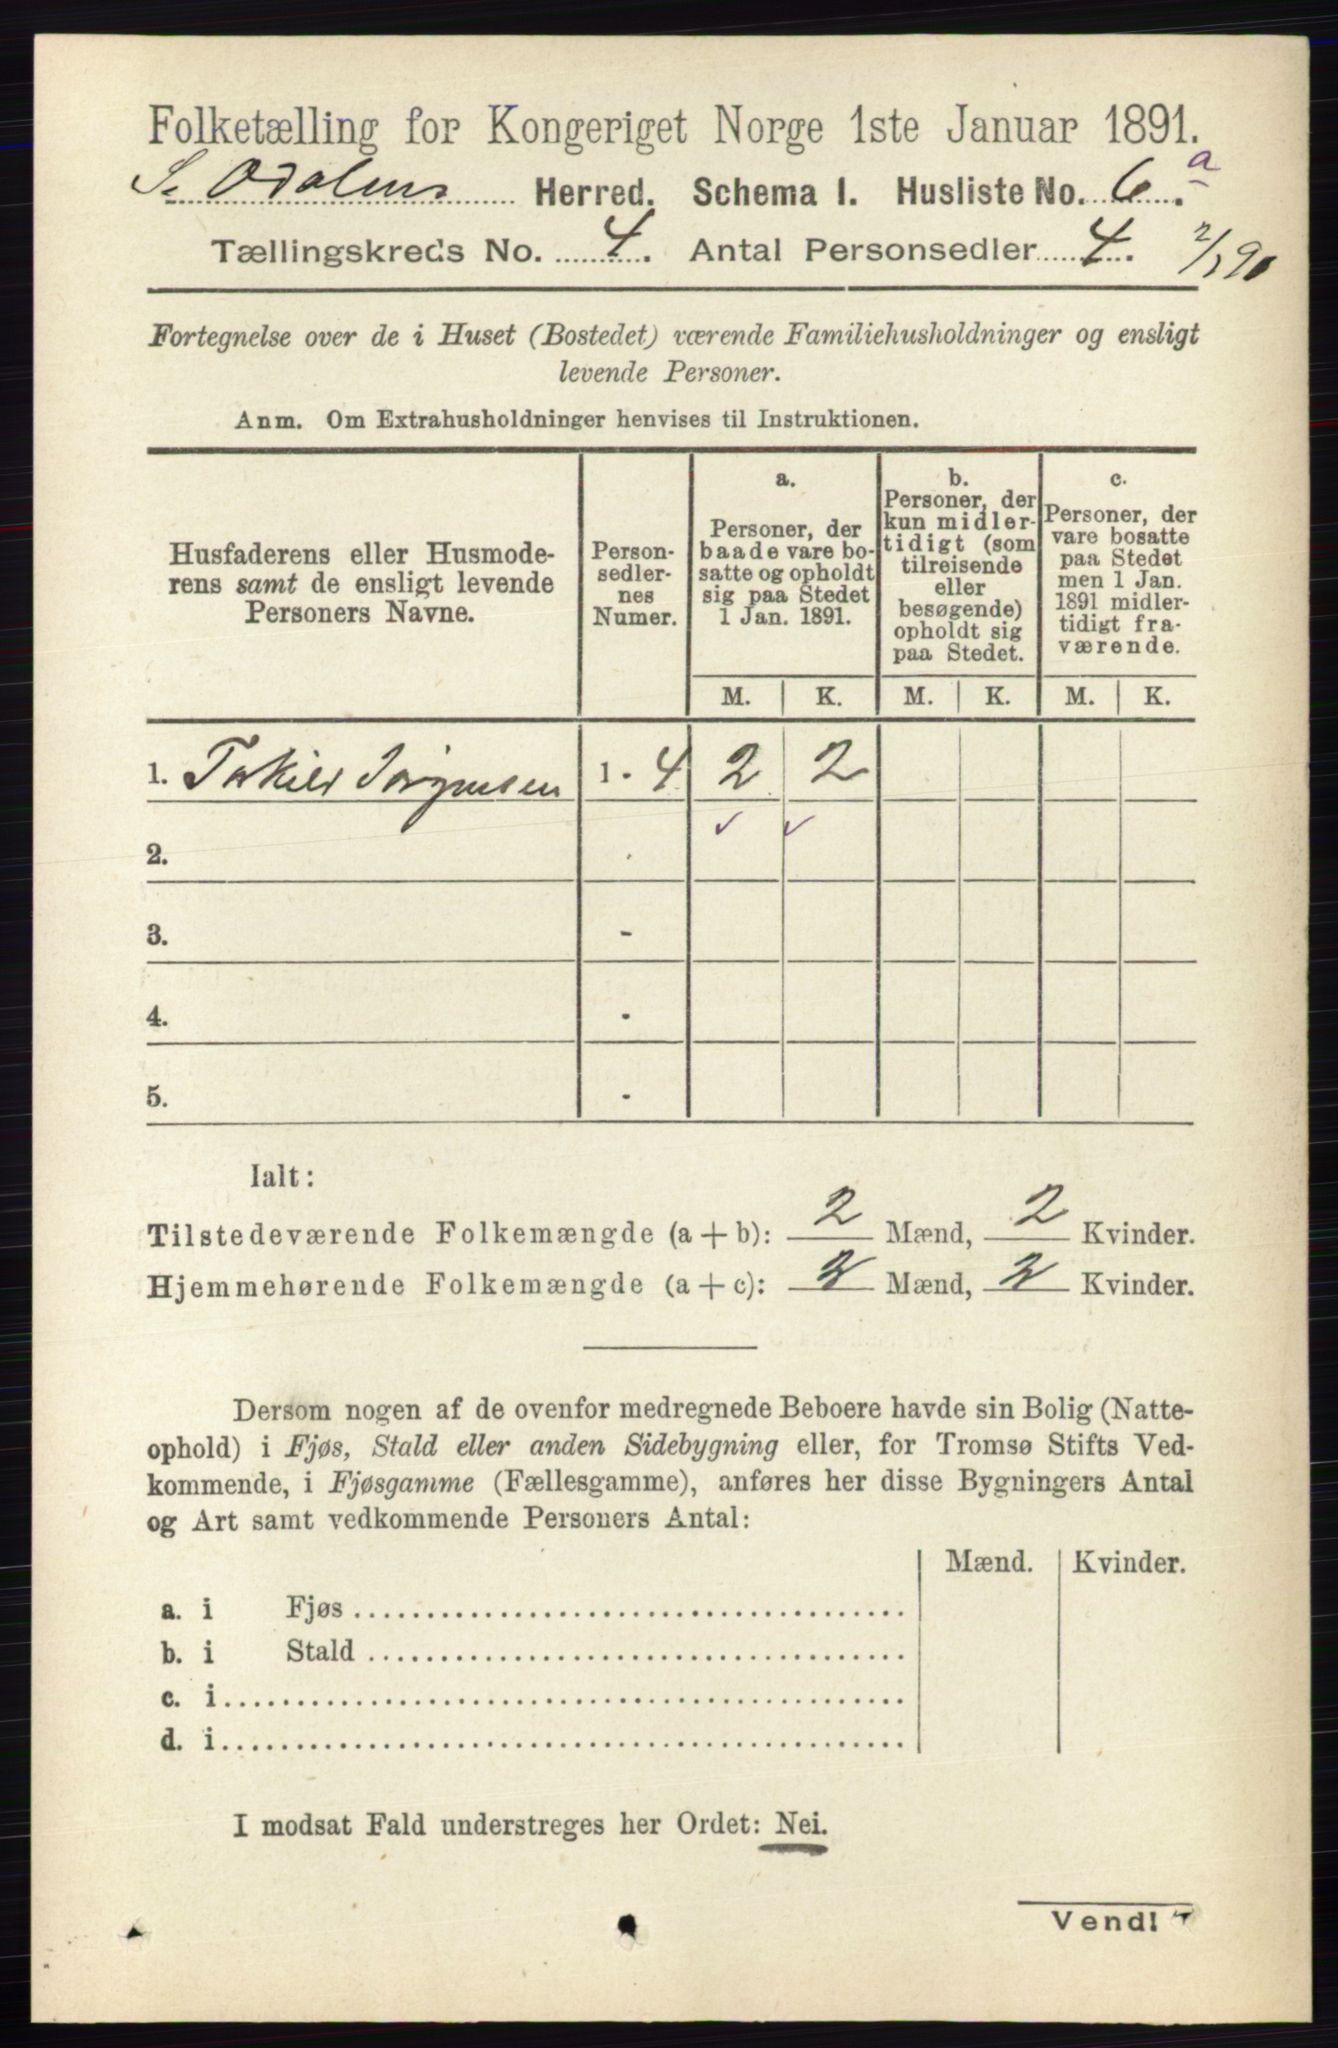 Folketælling for Kongeriget Norge 1ste Januar 1891.
S. Odalens Herred. Schema I. Husliste No. 6.a
Tællingskreds No. 4. Antal Personsedler 4.
Fortegnelse over de i Huset (Bostedet) værende Familiehusholdninger og ensligt
levende Personer.
Anm. Om Extrahusholdninger henvises til Instruktionen.
Husfaderens eller Husmode-
rens samt de ensligt levende
Personers Navne.
Person-
sedler-
nes
Numer.
a.
Personer, der
baade vare bo-
satte og opholdt
sig paa Stedet
1 Jan. 1891.
b.
Personer, der
kun midler-
tidigt (som
tilreisende
eller
besøgende)
opholdt sig
paa Stedet.
c.
Personer, der
vare bosatte
paa Stedet
men 1 Jan.
1891 midler-
tidigt fra-
værende.
M. K. M. K. M. K.
1. Jørgensen 1 - 4 2 2
2.
3. -
4. -
5. -
Ialt:
Tilstedeværende Folkemængde (a + b): 2 Mænd, 2 Kvinder.
Hjemmehørende Folkemængde (a + c): 2 Mænd, 2 Kvinder.
Dersom nogen af de ovenfor medregnede Beboere havde sin Bolig (Natte-
ophold) i Fjøs, Stald eller anden Sidebygning eller, for Tromsø Stifts Ved-
kommende, i Fjøsgamme (Fællesgamme), anføres her disse Bygningers Antal
og Art samt vedkommende Personers Antal:
Mænd. Kvinder.
a. i Fjøs
b. i Stald
c. i
d. i
I modsat Fald understreges her Ordet: Nei.
Vend!